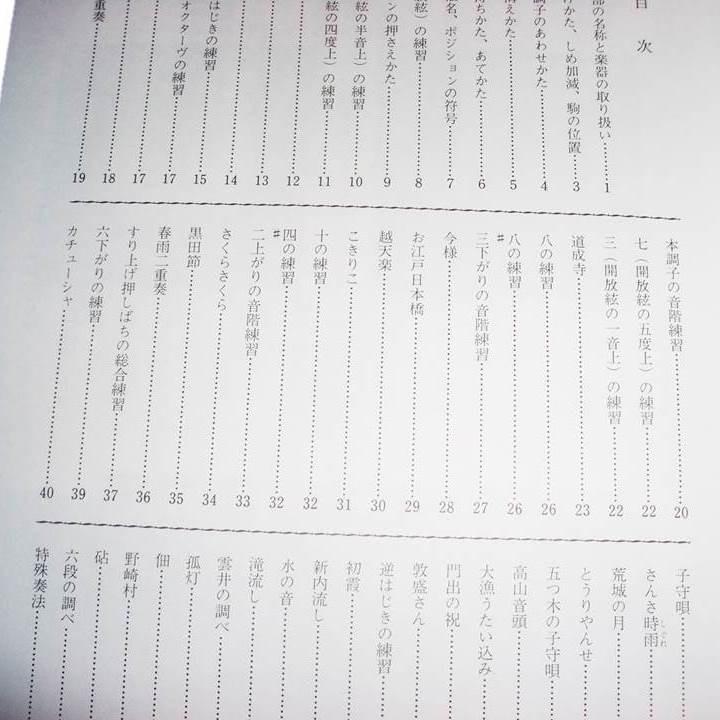 目次
部の名称と楽器の取り扱い 1
けかた、しめ加減、駒の位置 3
調子のあわせかた 4
構えかた 5
持ちかた、あてかた 6
名、ポジションの符号 7
絃）の練習 8
ンの押さえかた 9
絃の半音上）の練習 10
絃の四度上）の練習 11
12
13
14
はじきの練習 15
17
オクターヴの練習 17
18
重奏 19
本調子の音階練習 20
七（開放絃の五度上）の練習 22
三（開放絃の一音上）の練習 22
道成寺 23
八の練習 26
♯八の練習 26
三下がりの音階練習 27
今様 28
お江戸日本橋 29
越天楽 30
こきりこ 31
十の練習 32
♯四の練習 32
二上がりの音階練習 33
さくらさくら 34
黒田節 35
春雨二重奏 36
すり上げ押しばちの総合練習 37
六下がりの練習 39
カチューシャ 40
子守唄
さんさ時雨
しぐれ
荒城の月
とうりやんせ
五つ木の子守唄
高山音頭
大漁うたい込み
門出の祝
敦盛さん
逆はじきの練習
初霞
新内流し
水の音
滝流し
雲井の調べ
孤灯
佃
野崎村
砧
六段の調べ
特殊奏法